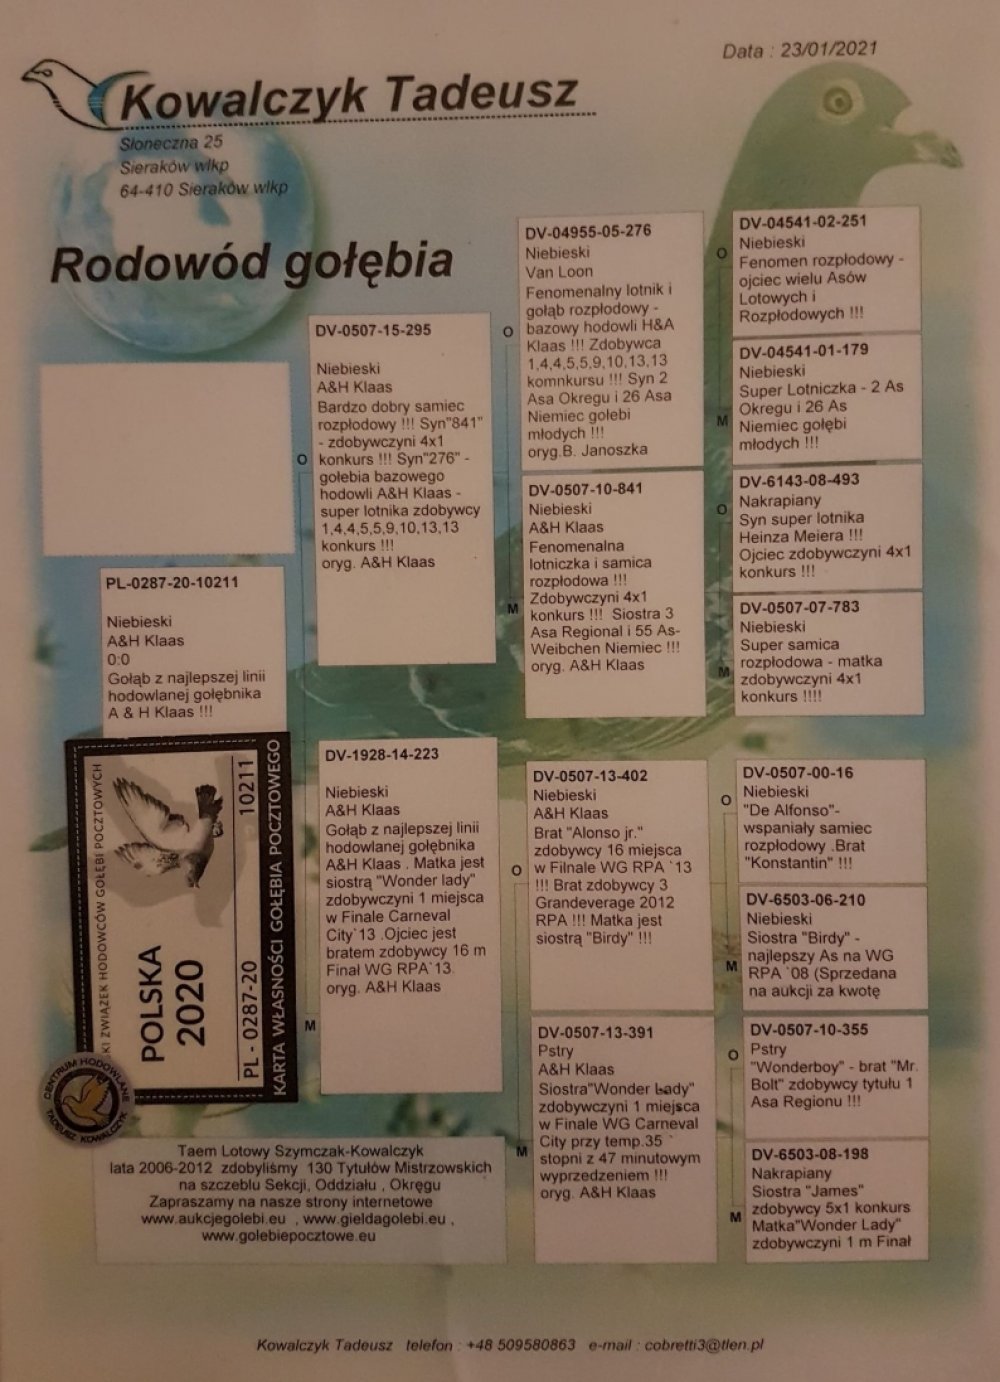 Data : 23/01/2021
Kowalczyk Tadeusz
Słoneczna 25
Sieraków wlkp
64-410 Sieraków wlkp
Rodowód gołębia
PL-0287-20-10211
Niebieski
A&H Klaas
0:0
Gołąb z najlepszej linii
hodowlanej gołębnika
A & H Klaas !!!
O
DV-0507-15-295
Niebieski
A&H Klaas
Bardzo dobry samiec
rozpłodowy !!! Syn"841"
- zdobywczyni 4x1
konkurs !!! Syn"276" -
gołebia bazowego
hodowli A&H Klaas -
super lotnika zdobywcy
1,4,4,5,5,9,10,13,13
konkurs !!!
oryg. A&H Klaas
M
DV-1928-14-223
Niebieski
A&H Klaas
Gołąb z najlepszej linii
hodowlanej gołębnika
A&H Klaas . Matka jest
siostrą "Wonder lady"
zdobywczyni 1 miejsca
w Finale Carneval
City`13 .Ojciec jest
bratem zdobywcy 16 m
Finał WG RPA`13.
oryg. A&H Klaas
O
DV-04955-05-276
Niebieski
Van Loon
Fenomenalny lotnik i
gołąb rozpłodowy -
bazowy hodowli H&A
Klaas !!! Zdobywca
1,4,4,5,5,9,10,13,13
komnkursu !!! Syn 2
Asa Okregu i 26 Asa
Niemiec gołebi
młodych !!!
oryg.B. Janoszka
M
DV-0507-10-841
Niebieski
A&H Klaas
Fenomenalna
lotniczka i samica
rozpłodowa !!!
Zdobywczyni 4x1
konkurs !!! Siostra 3
Asa Regional i 55 As-
Weibchen Niemiec !!!
oryg. A&H Klaas
O
DV-0507-13-402
Niebieski
A&H Klaas
Brat "Alonso jr."
zdobywcy 16 miejsca
w Filnale WG RPA `13
!!! Brat zdobywcy 3
Grandeverage 2012
RPA !!! Matka jest
siostrą "Birdy" !!!
M
DV-0507-13-391
Pstry
A&H Klaas
Siostra"Wonder Lady"
zdobywczyni 1 miejsca
w Finale WG Carneval
City przy temp.35 `
stopni z 47 minutowym
wyprzedzeniem !!!
oryg. A&H Klaas
O
DV-04541-02-251
Niebieski
Fenomen rozpłodowy -
ojciec wielu Asów
Lotowych i
Rozpłodowych !!!
M
DV-04541-01-179
Niebieski
Super Lotniczka - 2 As
Okregu i 26 As
Niemiec gołębi
młodych !!!
O
DV-6143-08-493
Nakrapiany
Syn super lotnika
Heinza Meiera !!!
Ojciec zdobywczyni 4x1
konkurs !!!
M
DV-0507-07-783
Niebieski
Super samica
rozpłodowa - matka
zdobywczyni 4x1
konkurs !!!!
O
DV-0507-00-16
Niebieski
"De Alfonso"-
wspaniały samiec
rozpłodowy .Brat
"Konstantin" !!!
M
DV-6503-06-210
Niebieski
Siostra "Birdy" -
najlepszy As na WG
RPA `08 (Sprzedana
na aukcji za kwotę
O
DV-0507-10-355
Pstry
"Wonderboy" - brat "Mr.
Bolt" zdobywcy tytułu 1
Asa Regionu !!!
M
DV-6503-08-198
Nakrapiany
Siostra "James"
zdobywcy 5x1 konkurs
Matka"Wonder Lady"
zdobywczyni 1 m Finał
KI ZWIĄZEK HODOWCÓW GOŁĘBI POCZTOWYCH
POLSKA
2020
PL - 0287-20 10211
KARTA WŁASNOŚCI GOŁĘBIA POCZTOWEGO
CENTRUM HODOWLANE
TADEUSZ KOWALCZYK
Taem Lotowy Szymczak-Kowalczyk
lata 2006-2012 zdobyliśmy 130 Tytułów Mistrzowskich
na szczeblu Sekcji, Oddziału , Okręgu
Zapraszamy na nasze strony internetowe
www.aukcjegolebi.eu , www.gieldagolebi.eu ,
www.golebiepocztowe.eu
Kowalczyk Tadeusz telefon : +48 509580863 e-mail : cobretti3@tlen.pl